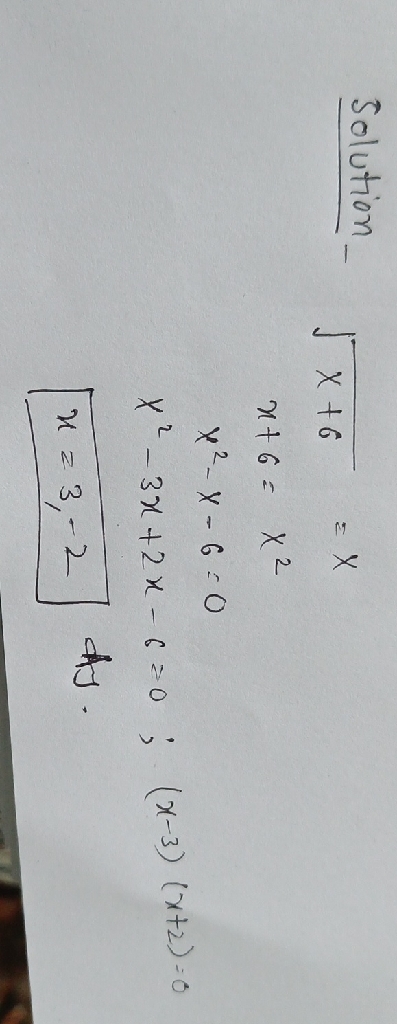 Solution - √x+6 = x
x+6 = x²
x²-x-6=0
x²-3x+2x-6=0 ; (x-3)(x+2)=0
x = 3,-2